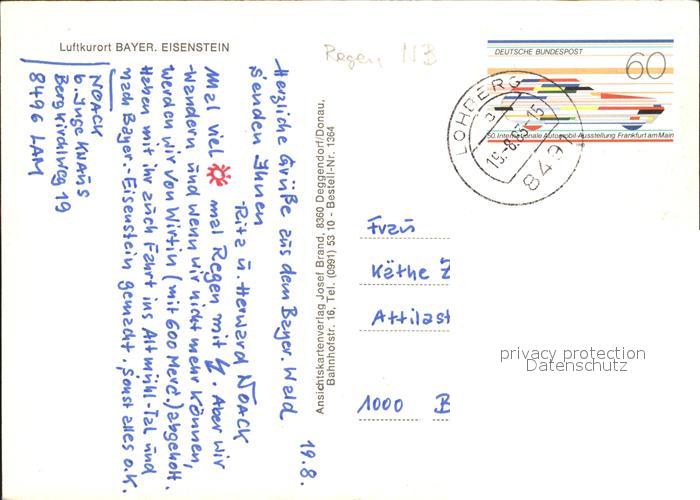 Luftkurort BAYER. EISENSTEIN
Regen NB
DEUTSCHE BUNDESPOST
60
50. Internationale Automobil-Ausstellung Frankfurt am Main
LOHBERG
a
19.-8.83-15
8491
19.8.
Herzliche Grüße aus dem Bayer. Wald
senden Ihnen
Rita u. Herward NOACK
Mal viel mal Regen mit . Aber wir
Wandern und wenn wir nicht mehr können,
werden wir von Wirtin (mit 600 Merc.) abgeholt.
Haben mit ihr auch Fahrt ins Altmühl-Tal und
nach Bayer.-Eisenstein gemacht. Sonst alles o.k.
NOACK
b. Inge KRAUS
Bergkirchlweg 19
8496 LAM
Ansichtskartenverlag Josef Brand, 8360 Deggendorf/Donau,
Bahnhofstr. 16, Tel. (0991) 53 10 - Bestell-Nr. 1364
Frau
Käthe Z
Attilast
1000 B
privacy protection
Datenschutz